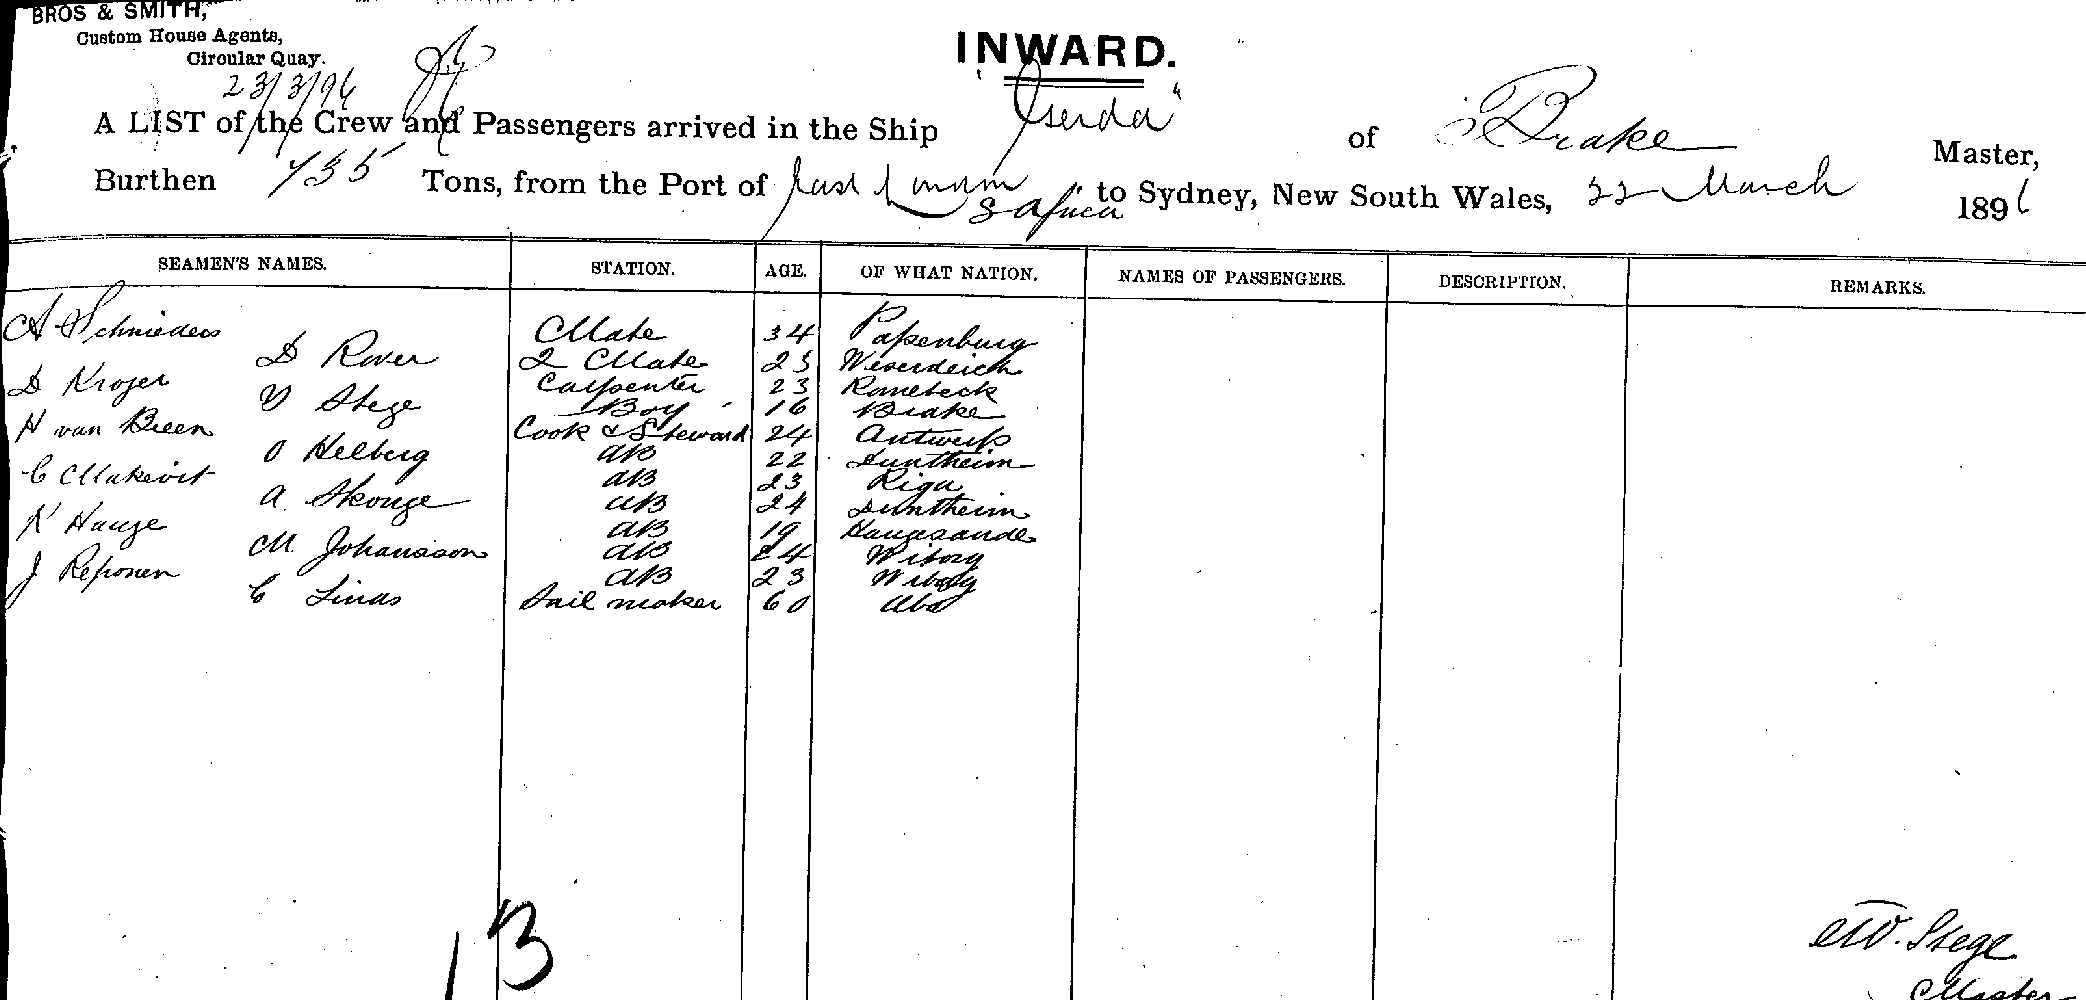 BROS & SMITH,
Custom House Agents,
Circular Quay.
23/3/96
INWARD.
A LIST of the Crew and Passengers arrived in the Ship "Gerda" of Brake Master,
Burthen 735 Tons, from the Port of East London S Africa to Sydney, New South Wales, 22 March 1896
SEAMEN'S NAMES. STATION. AGE. OF WHAT NATION. NAMES OF PASSENGERS. DESCRIPTION. REMARKS.
A Schnieders Mate 34 Papenburg
D Rover 2 Mate 23 Weserdeich
D Kroger Carpenter 23 Ronnebeck
V Stege Boy 16 Brake
H van Breen Cook & Steward 24 Antwerp
O Helberg AB 22 Duntheim
C Makevit AB 23 Riga
A. Skouge AB 24 Duntheim
K Hauge AB 19 Haugesande
M. Johansson AB 24 Wiborg
J Reponen AB 23 Wiborg
C Linds Sail maker 60 Abo
13
Stege
Master